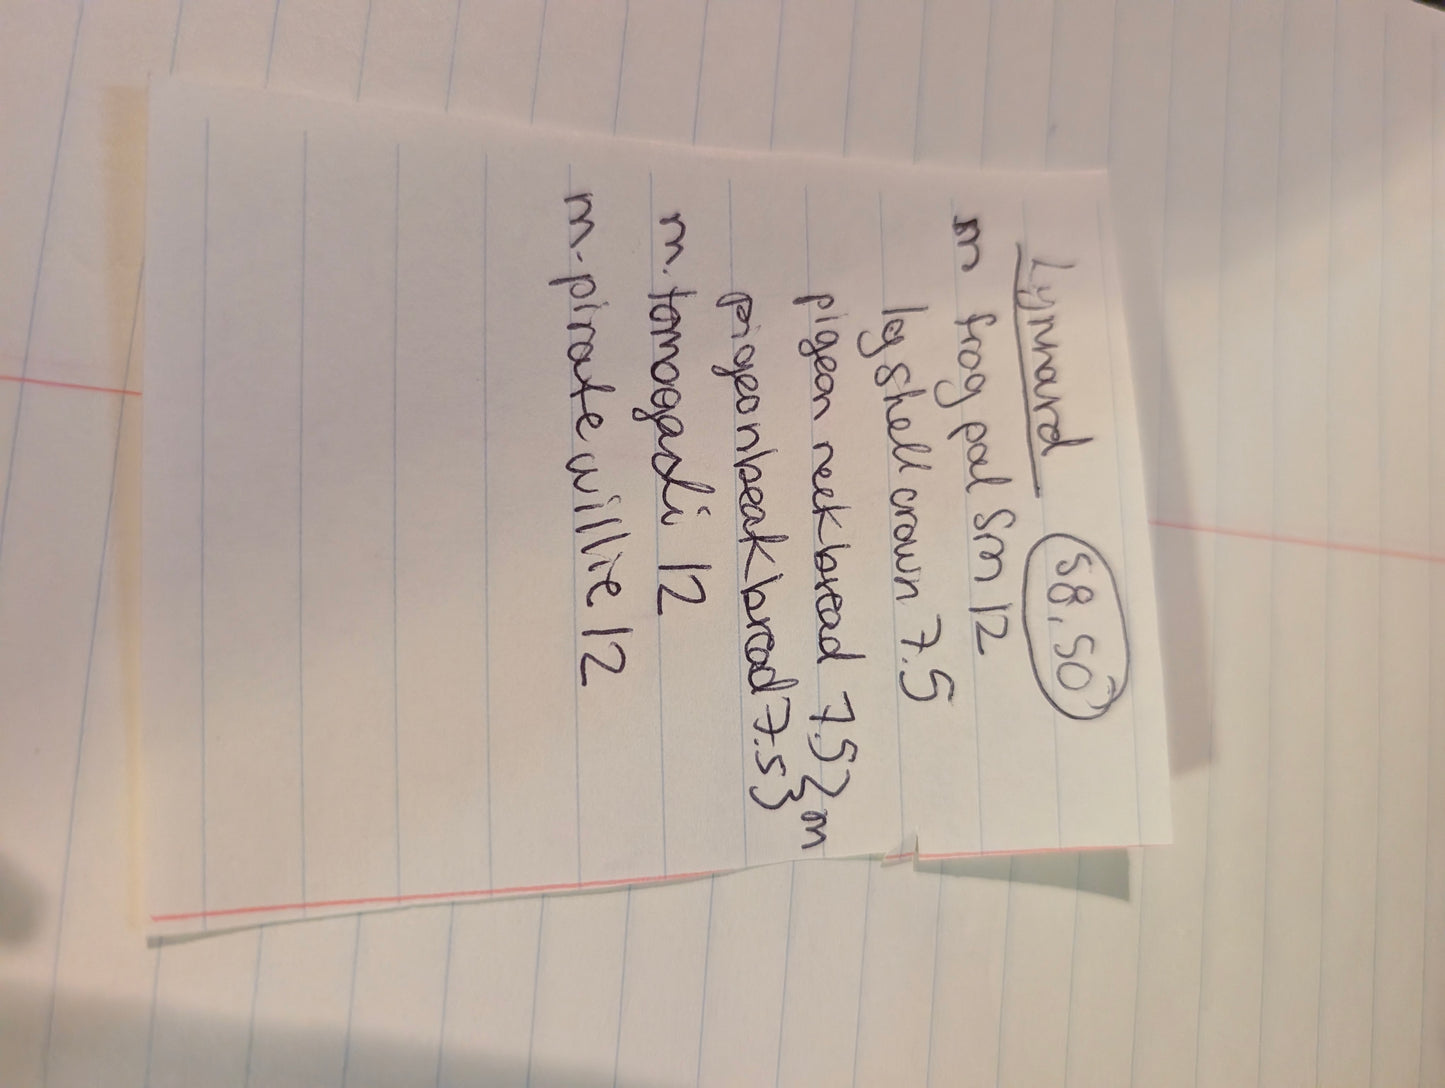 Lynnard 58.50
m frog pal sm 12
lg shell crown 7.5
pigeon neck bread 7.5 } m
pigeon break bread 7.5 }
m. tomogadi 12
m-pirate willie 12